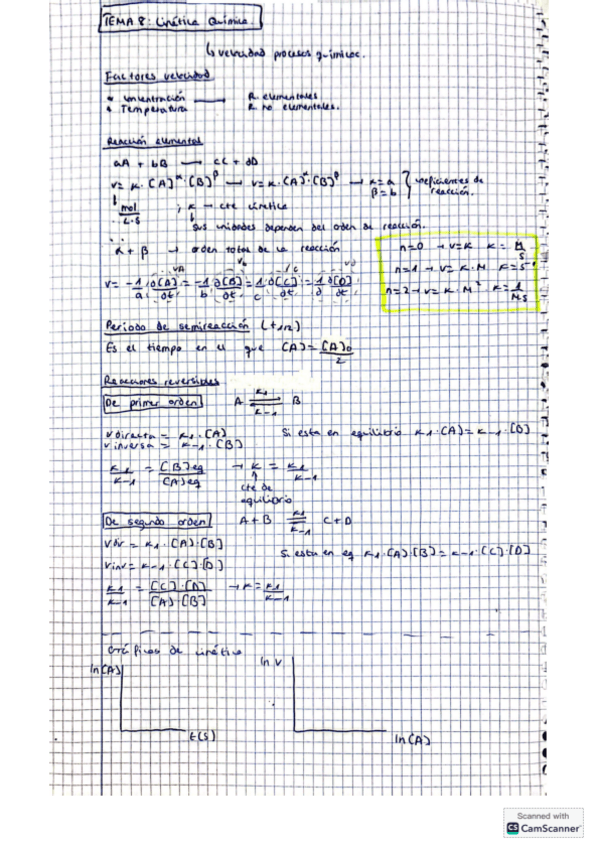 TEMA 8: Cinética Química.
↳ velocidad procesos químicos.
Factores velocidad
* Concentración ⟶ R. elementales
* Temperatura R. no elementales.
Reacción elemental
aA + bB ⟶ cC + dD
v = k · [A]^α · [B]^β ⟶ v = k · [A]^α · [B]^β → α = a β = b } coeficientes de reacción.
mol/L·s ; k → cte cinética
sus unidades dependen del orden de reacción.
α + β → orden total de la reacción
n=0 → v=k k = M/s
n=1 → v= k · M k = s⁻¹
n=2 → v= k · M² k = 1/Ms
v = -1/a ∂[A]/∂t = -1/b ∂[B]/∂t = 1/c ∂[C]/∂t = 1/d ∂[D]/∂t
Periodo de semireacción (t1/2)
Es el tiempo en el que [A] = [A]0/2
Reacciones reversibles
De primer orden A ⇌ B k1 k-1
v directa = k1 · [A] Si esta en equilibrio k1 · [A] = k-1 · [D]
v inversa = k-1 · [B]
k1/k-1 = [B]eq/[A]eq → k = k1/k-1
cte de
equilibrio
De segundo orden A + B ⇌ C + D k1 k-1
Vdir = k1 · [A] · [B] Si esta en eq k1 · [A] · [B] = k-1 · [C] · [D]
Vinv = k-1 · [C] · [D]
k1/k-1 = [C] · [D]/[A] · [B] → k = k1/k-1
Gráficas de cinética
ln[A] ln v
t(s) ln[A]
Scanned with
CS CamScanner